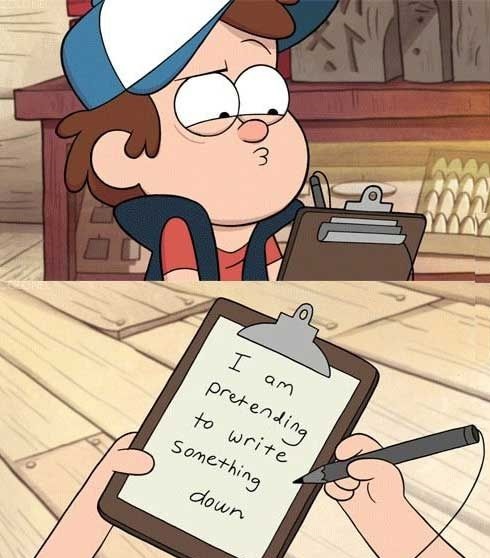 I am
pretending
to write
something
down